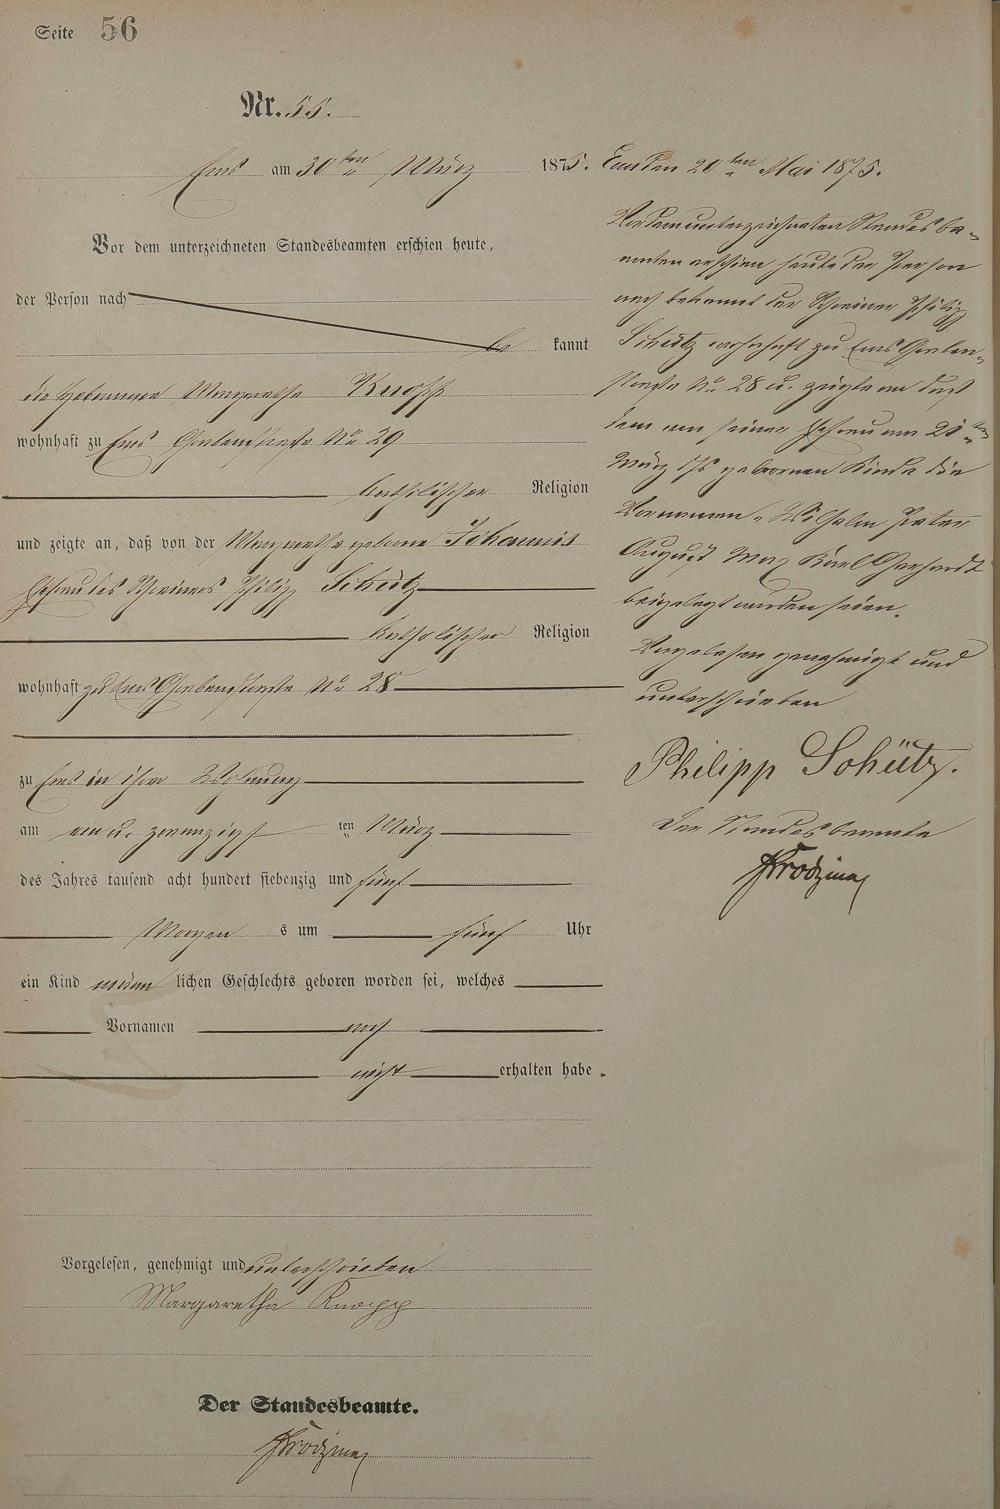 Seite 56
Nr. 55.
Ems am 30ten März 1875.
Vor dem unterzeichneten Standesbeamten erschien heute,
der Person nach
be kannt
die Hebamme Margaretha Knopp
wohnhaft zu Ems Grabenstraße No 29
katholischer Religion
und zeigte an, daß von der Margaretha geborne Johannis
Ehefrau des Schreiners Philipp Schütz
katholischer Religion
wohnhaft zu Ems Grabenstraße No 28
zu Ems in ihrer Wohnung
am ein u. zwanzigst ten März
des Jahres tausend acht hundert siebenzig und fünf
Morgen s um fünf Uhr
ein Kind männ lichen Geschlechts geboren worden sei, welches
Vornamen noch
nicht erhalten habe.
Vorgelesen, genehmigt und unterschrieben
Margaretha Knopp
Der Standesbeamte.
Ems den 20ten Mai 1875.
Vor dem unterzeichneten Standesbe-
amten erschien heute der Person
nach bekannt der Schreiner Philipp
Schütz wohnhaft zu Ems Graben-
straße No 28 u. zeigte an daß
dem von seiner Ehefrau am 21ten
März geborenen Kinde die
Vornamen Wilhelm Peter
August Max Karl Gerhardt
beigelegt worden seien.
Vorgelesen genehmigt und
unterschrieben
Philipp Schütz.
Der Standesbeamte